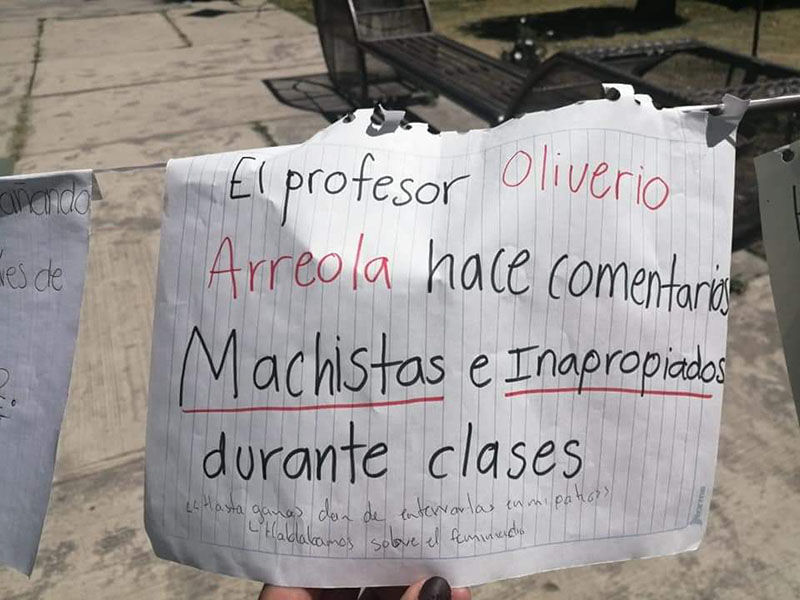 El profesor Oliverio
Arreola hace comentarios
Machistas e Inapropiados
durante clases
<<Hasta ganas dan de enterrarlas en mi patio>>
Hablábamos sobre el feminicidio
añando
es de